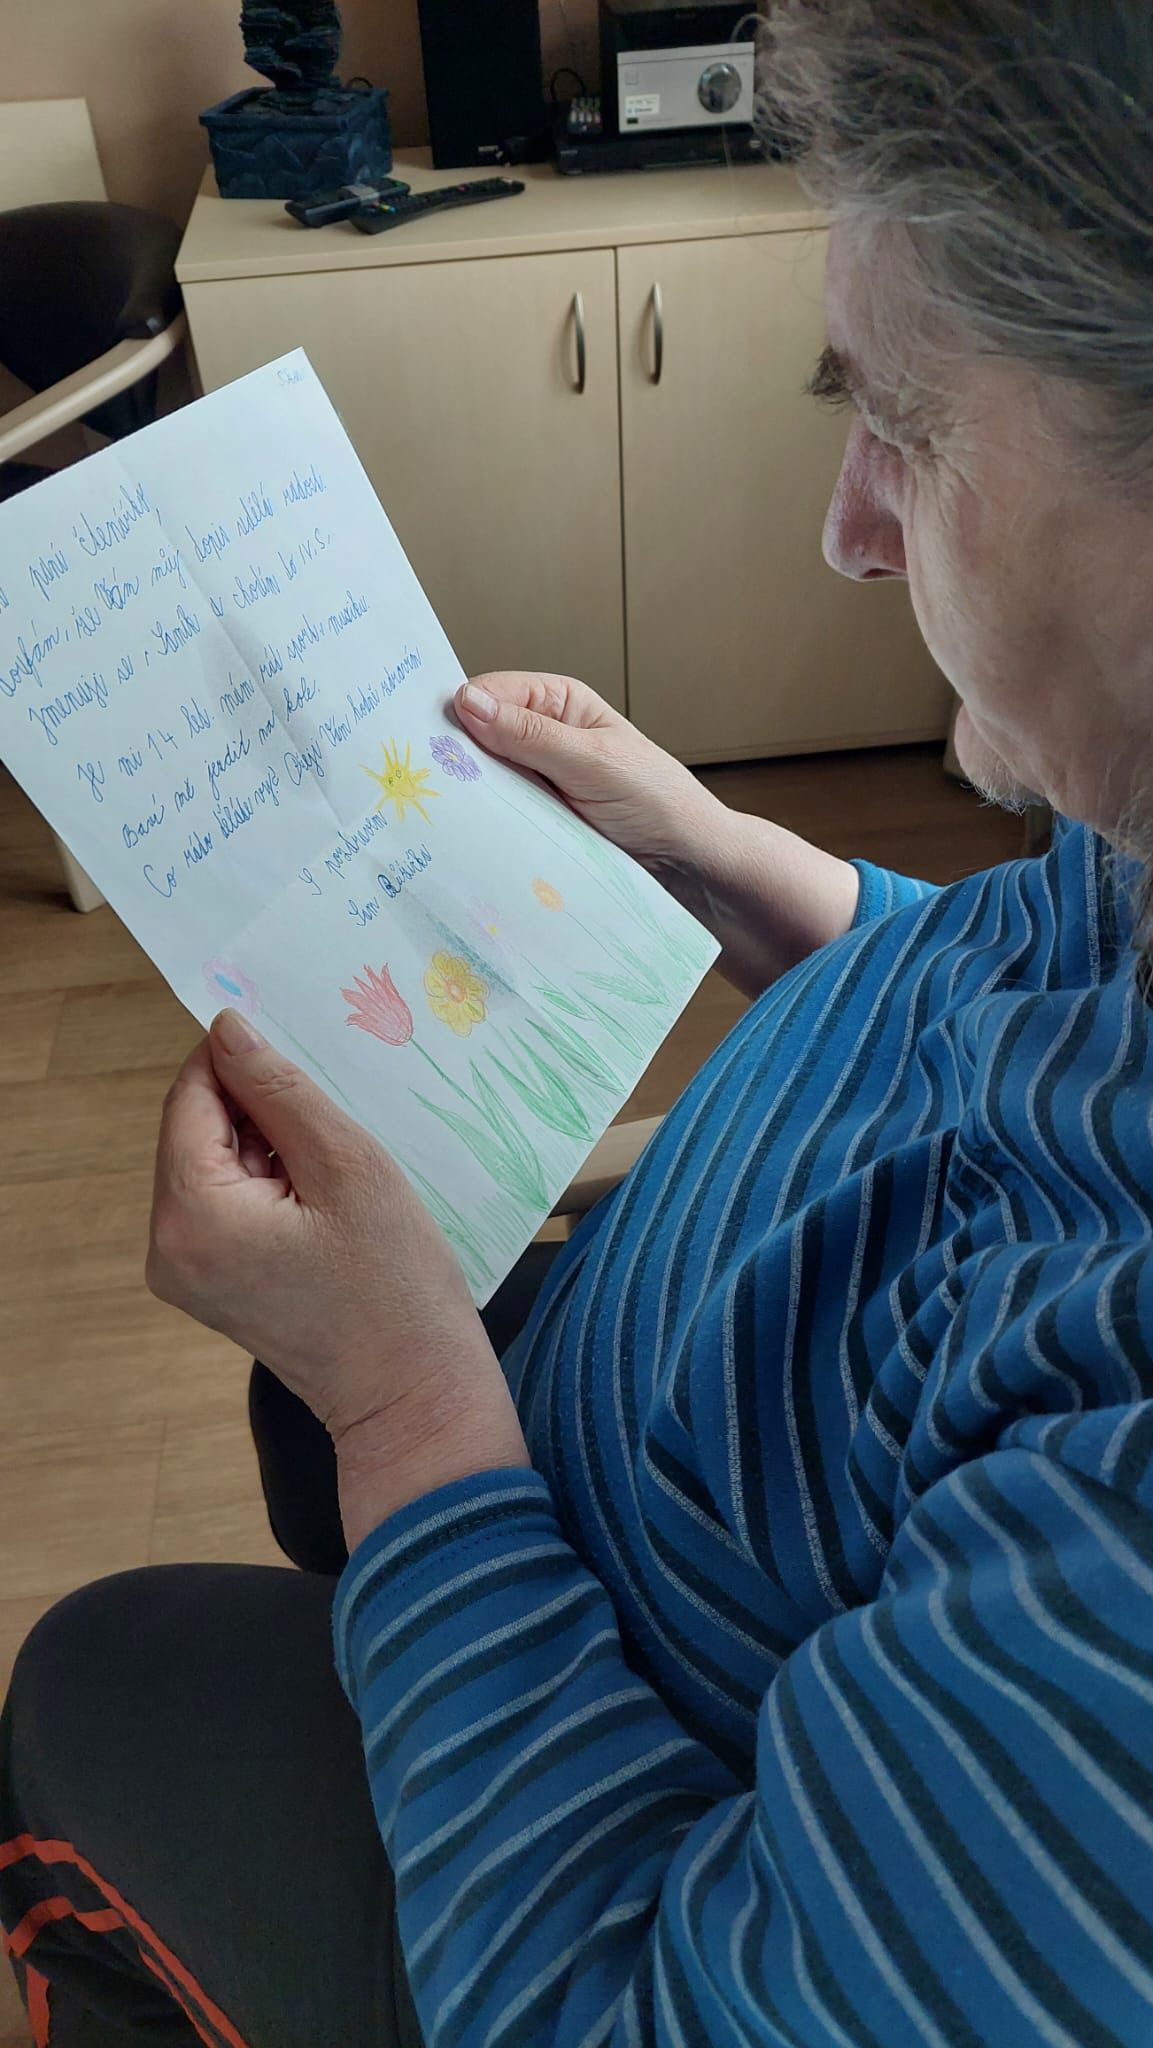 SAM
paní čtenářko,
doufám, že Vám můj dopis udělá radost.
Jmenuji se, Samík a chodím do IV.S.
Je mi 14 let. mám rád sport, muziku.
Baví mě jezdit na kole.
Co ráda děláte vy? Chěji Vám hodně zdravím
S pozdravem
Sam Růžička
SONY